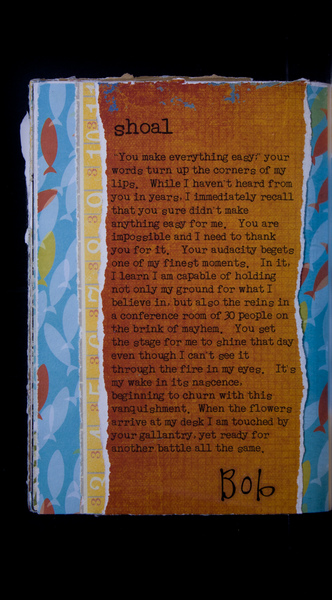 shoal
"You make everything easy" your
words turn up the corners of my
lips. While I haven't heard from
you in years, I immediately recall
that you sure didn't make
anything easy for me. You are
impossible and I need to thank
you for it. Your audacity begets
one of my finest moments. In it,
I learn I am capable of holding
not only my ground for what I
believe in, but also the reins in
a conference room of 30 people on
the brink of mayhem. You set
the stage for me to shine that day
even though I can't see it
through the fire in my eyes. It's
my wake in its nascence,
beginning to churn with this
vanquishment. When the flowers
arrive at my desk I am touched by
your gallantry, yet ready for
another battle all the same.
Bob